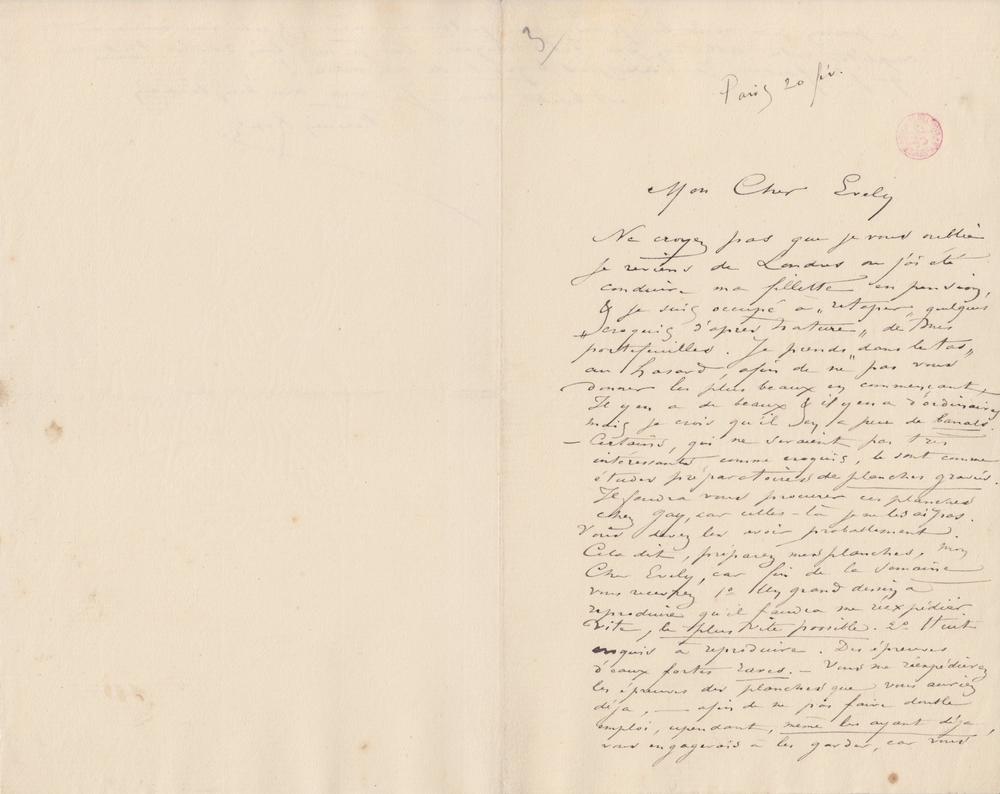 3/
Paris 20 fév.
Mon Cher Evely
Ne croyez pas que je vous oublie
je reviens de Londres ou j'ai été
conduire ma fillette en pension,
& je suis occupé à „retaper„ quelques
„croquis d'après nature„ de mes
portefeuilles. Je prends „dans le tas„
au hasard afin de ne pas vous
donner les plus beaux en commençant,
Il y en a de beaux & il y en a d'ordinaires
mais je crois qu'il y en a peu de banals.
— Certains, qui ne seraient pas très
intéressants comme croquis, le sont comme
études préparatoires de planches gravées.
Il faudra vous procurer ces planches
chez Gay, car celles-là je ne les ai pas.
Vous devez les avoir probablement.
Cela dit, préparez mes planches, mon
Cher Evely, car fin de la semaine
vous recevrez 1o Un grand dessin à
reproduire qu'il faudra me réexpédier
vite, le plus vite possible. 2o Huit
croquis à reproduire. Des épreuves
d'eaux fortes rares. — Vous me réexpédierez
les épreuves des planches que vous auriez
déja, — afin de ne pas faire double
emploi, cependant, même les ayant déja,
vous engagerais à les garder, car vous